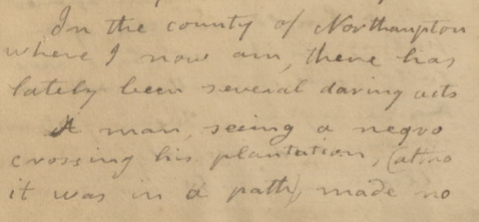 In the county of Northampton
where I now am, there has
lately been several daring acts
A man, seeing a negro
crossing his plantation, (altho
it was in a path) made no